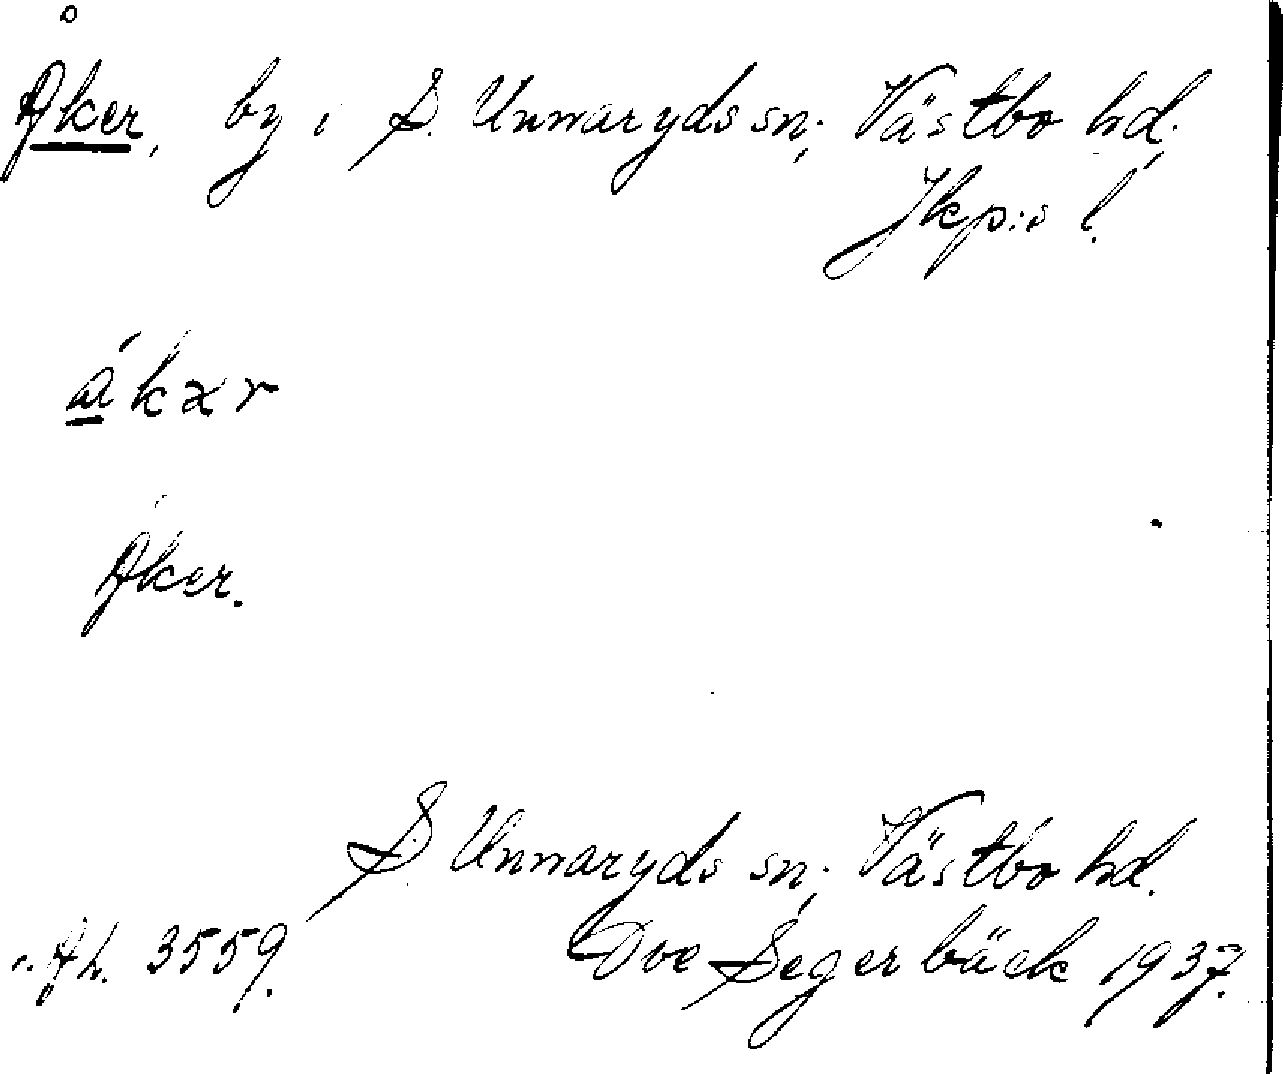 Åker, by i S. Unnaryds sn; Västbo hd.
Jkp:s l.
ákær
Åker.
S. Unnaryds sn; Västbo hd.
Ah. 3559. Ove Segerbäck 1937.